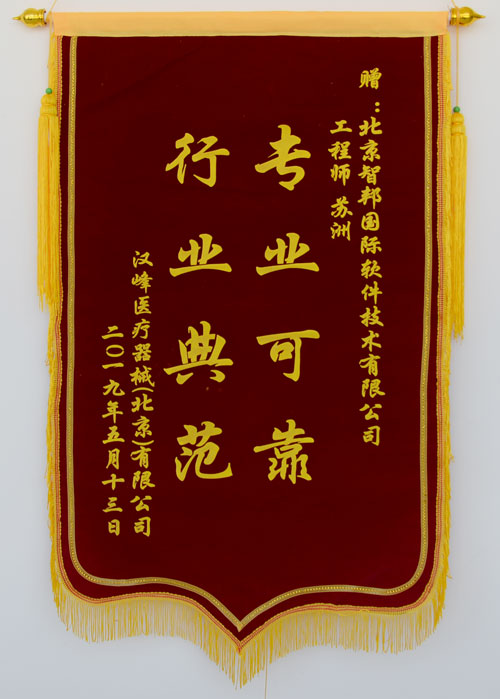 赠：北京智邦国际软件技术有限公司
工程师 苏洲
专业可靠
行业典范
汉峰医疗器械(北京)有限公司
二〇一九年五月十三日